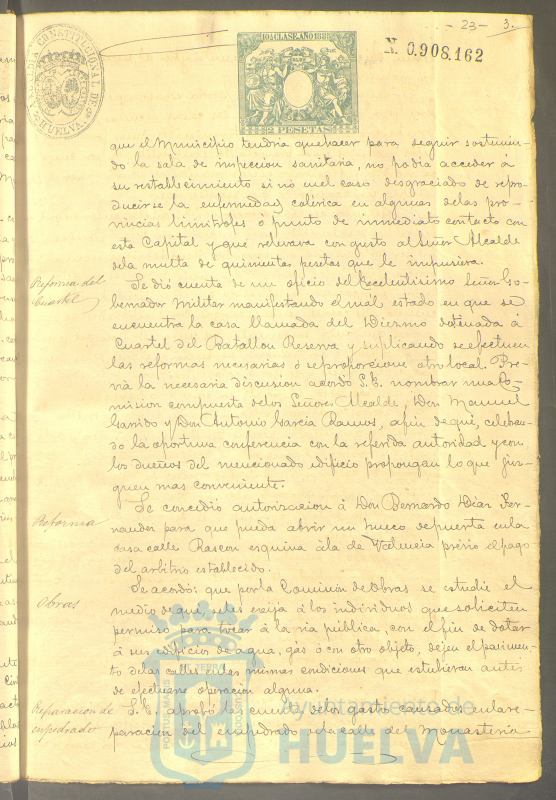 - 23 - 3.
ALCALDIA CONSTITUCIONAL DE HUELVA
10ª CLASE. AÑO 1885
2 PESETAS
N. 0.908.162
que el Municipio tendria que hacer para seguir sostenien-
do la sala de inspeccion sanitaria, no podia acceder á
su restablecimiento si no en el caso desgraciado de repro-
ducirse la enfermedad colérica en algunas de las pro-
vincias limítrofes ó punto de inmediato contacto con
esta Capital y que relevara con gusto al Señor Alcalde
de la multa de quinientas pesetas que le impusiera.
Reforma del
Cuartel
Se dió cuenta de un oficio del Excelentisimo Señor Go-
bernador Militar manifestando el mal estado en que se
encuentra la casa llamada del Diezmo destinada á
Cuartel del Batallon Reserva y suplicando se efectuen
las reformas necesarias ó se proporcione otro local. Pre-
viá la necesaria discusion acordó S.E. nombrar una Co-
mision compuesta de los Señores Alcalde, Don Manuel
Garrido y Don Antonio Garcia Ramos, á fin de que, celebran-
do la oportuna conferencia con la referida autoridad y con
los dueños del mencionado edificio propongan lo que juz-
guen mas conveniente.
Reforma
Se concedió autorizacion á Don Bernardo Diaz Fer-
nandez para que pueda abrir un hueco de puerta en la
casa calle Rascon esquina á la de Valencia prévio el pago
del arbitrio establecido.
Obras
Se acordó: que por la Comision de Obras se estudie el
medio de que se les exija á los individuos que soliciten
permiso para tocar á la via pública, con el fin de dotar
á sus edificios de agua, gas ó con otro objeto, dejen el pavimen-
to de las calles en las mismas condiciones que estubieran antes
de efectuar operacion alguna.
Reparacion de
empedrado
S.E. aprobó la cuenta de los gastos causados en la re-
paracion del empedrado de la calle del Monasterio
PORTUS MARIS ET TERRE CUSTODIA
Ayuntamiento de
HUELVA